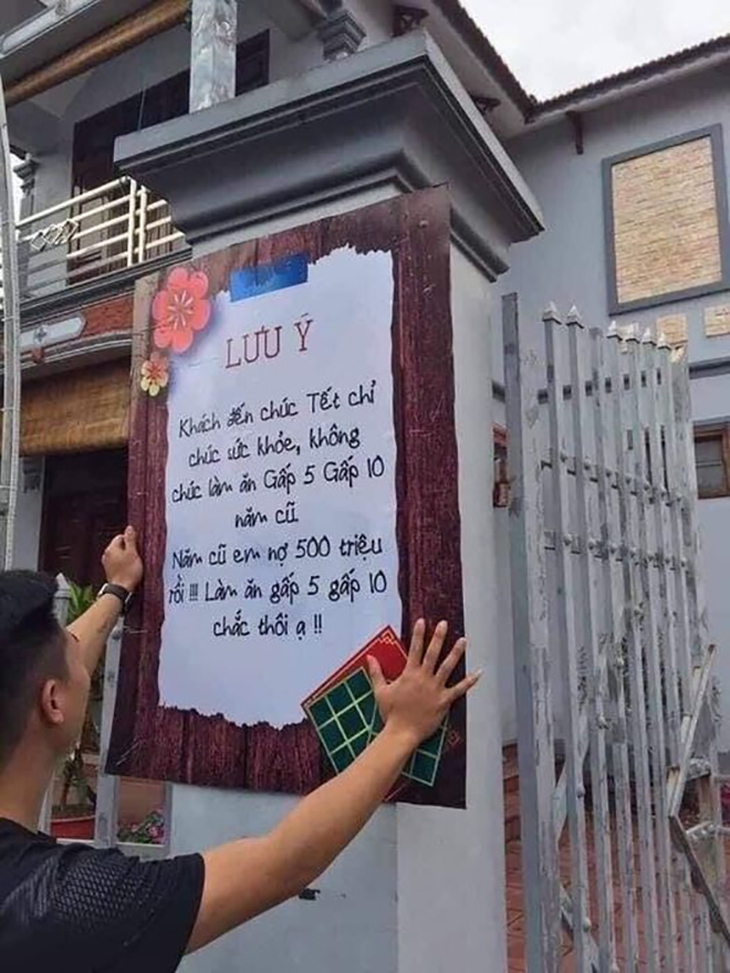 LƯU Ý
Khách đến chúc Tết chỉ
chúc sức khỏe, không
chúc làm ăn Gấp 5 Gấp 10
năm cũ
Năm cũ em nợ 500 triệu
rồi !!! Làm ăn gấp 5 gấp 10
chắc thôi ạ !!